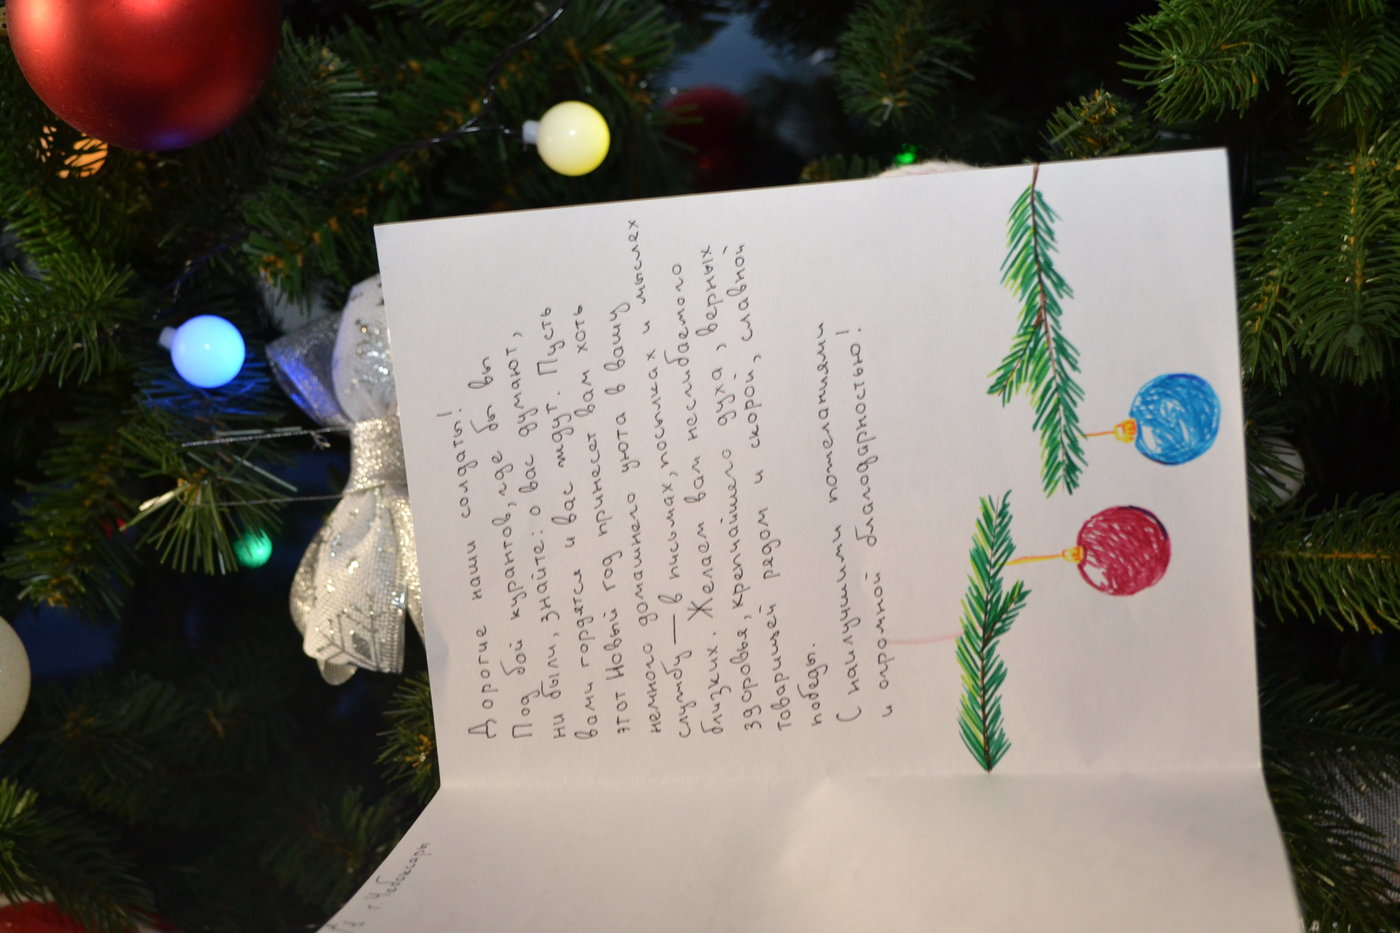 Дорогие наши солдаты!
Под бой курантов, где бы вы
ни были, знайте: о вас думают,
вами гордятся и вас ждут. Пусть
этот Новый год принесет вам хоть
немного домашнего уюта в вашу
службу — в письмах, посылках и мыслях
близких. Желаем вам несгибаемого
здоровья, крепчайшего духа, верных
товарищей рядом и скорой, славной
победы.
С наилучшими пожеланиями
и огромной благодарностью!
г. Чебоксары